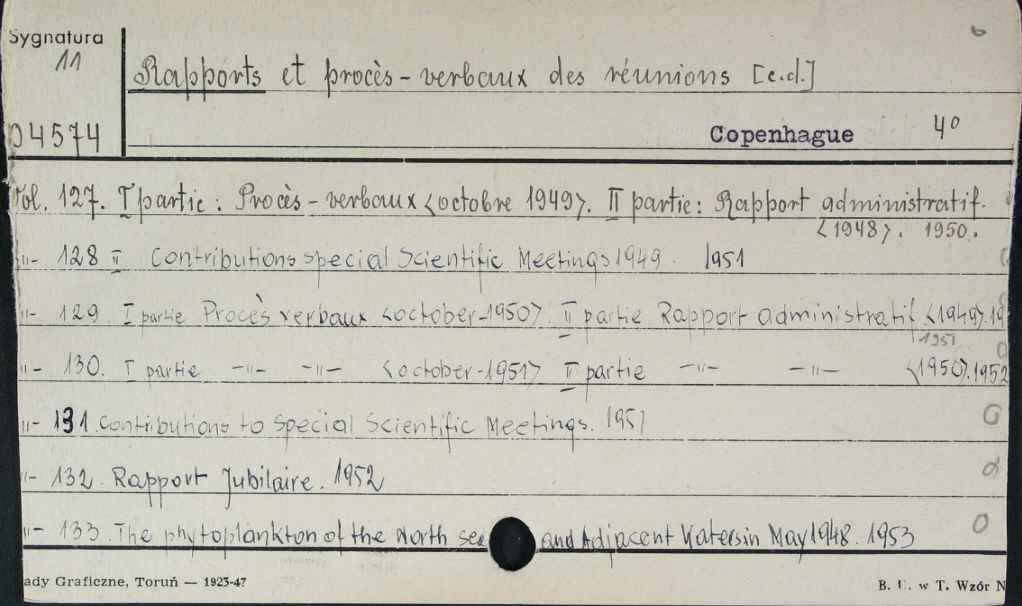 Sygnatura
11
Rapports et procès-verbaux des réunions [c.d.]
04574
Copenhague 4º
Vol. 127. I partie: Procès-verbaux <octobre 1949>. II partie: Rapport administratif.
<1948>. 1950.
-"- 128 II Contributions special Scientific Meetings 1949. 1951
-"- 129 I partie Procès verbaux <october-1950>. II partie Rapport administratif <1949>.19
1951
-"- 130. I partie -"- -"- <october-1951> II partie -"- -"- <1950>.1952
-"- 131. Contributions to Special Scientific Meetings. 1951
-"- 132. Rapport Jubilaire. 1952
-"- 133. The phytoplankton of the North sea and Adjacent Waters in May 1948. 1953
ady Graficzne, Toruń — 1923-47 B. U. w T. Wzór N